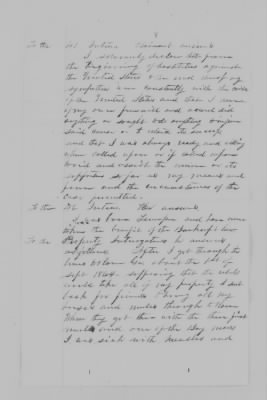 To the 1st Interro Claimant answers
I solemnly declare that from
the beginning of hostilities against
the United States to the end thereof my
sympathies were constantly with the cause
of the United States and that I never
of my own free will and accord did
anything or sought or to injure
said cause or to retard its success
and that I was always ready and willing
when called upon or if called upon
to aid and assist the cause or its
supporters so far as my means and
power and the circumstances of the
case permitted.
To the Interro He answers
and have never
taken the benefit of the Bankrupt law
To the Property Interrogatories he answers
as follows. After I got through to
Ga about the 1st of
Sept 1864. supposing that the rebels
would take all of my property I sent
back for all my
and mules through to Rome
When they got there with the
mules and one of the Bay mares
I was sick with measles and